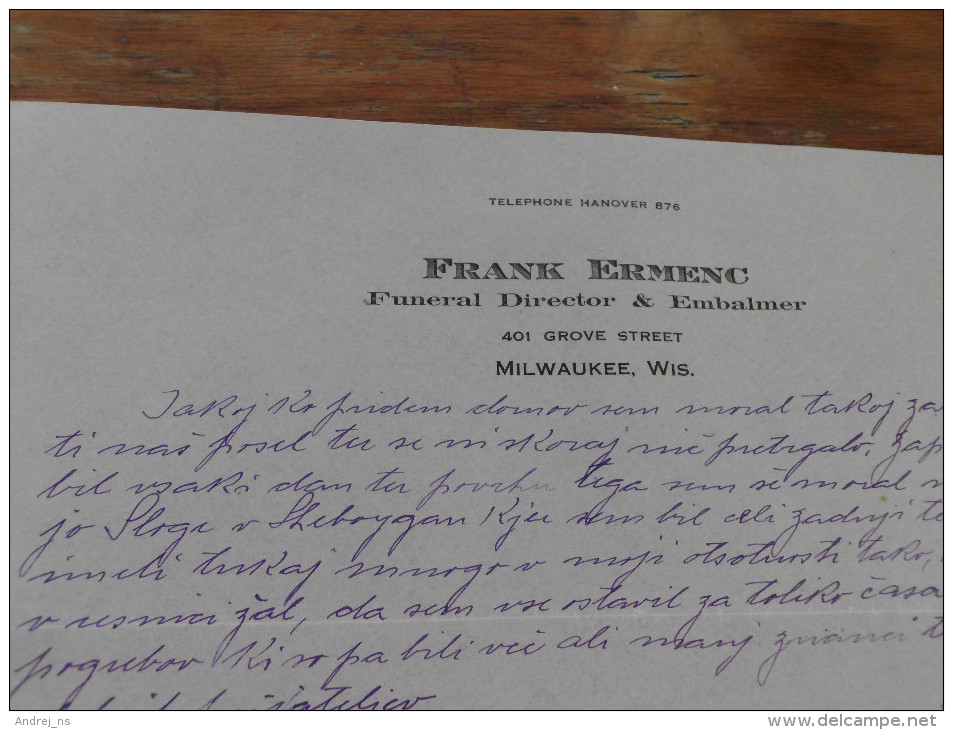 TELEPHONE HANOVER 876
FRANK ERMENC
Funeral Director & Embalmer
401 GROVE STREET
MILWAUKEE, WIS.
Takoj ko pridem domov sem moral takoj za
ti naš posel ter se ni skoraj nič pretrgalo. Zap
bil vsaki dan ter povrhu tega sem še moral
jo Sloge v Sheboygan Kjer sem bil celi zadnji te
imeli tukaj mnogo v moji otsotnosti tako,
v resnici žal, da sem vse ostavil za toliko časa
pogrebov Ki so pa bili več ali manj znanci
Andrej_ns
www.delcampe.net